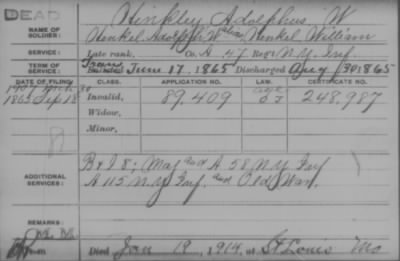 DEAD
Hinkley Adolphus W
NAME OF SOLDIER: Henkel, Adolph W alias Henkel William
SERVICE: Late rank, Co. A 47 Regt N.Y. Inf
TERM OF SERVICE: June 17, 1865 Discharged Aug 30 1865
DATE OF FILING. CLASS. APPLICATION NO. LAW. CERTIFICATE NO.
1907 Mch 30
1865 Sep 18 Invalid, 89,409 age 07 248,987
Widow,
Minor,
ADDITIONAL SERVICES: B & I 8; and A 58 N.Y. Inf
A 115 N.Y. Inf. and Old War.
REMARKS:
Died Jan 19, 1914, at St Louis Mo